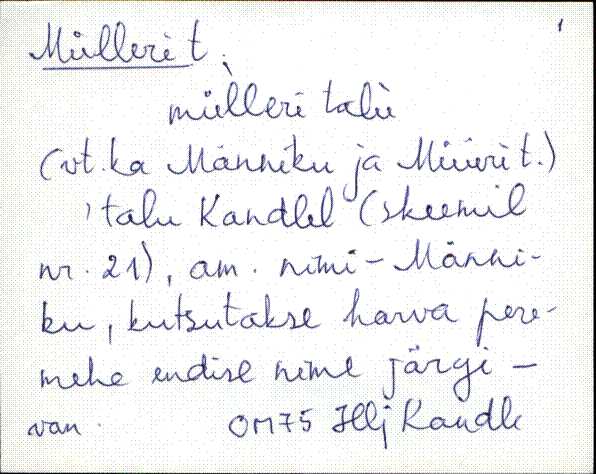 1
Mülleri t.
mülleri talù
(vt. ka Männiku ja Müüri t.)
, talu Kandlel (skeemil
nr. 21), am. nimi - Männi-
ku, kutsutakse harva pere-
mehe endise nime järgi -
van. OM75 Hlj Kandle